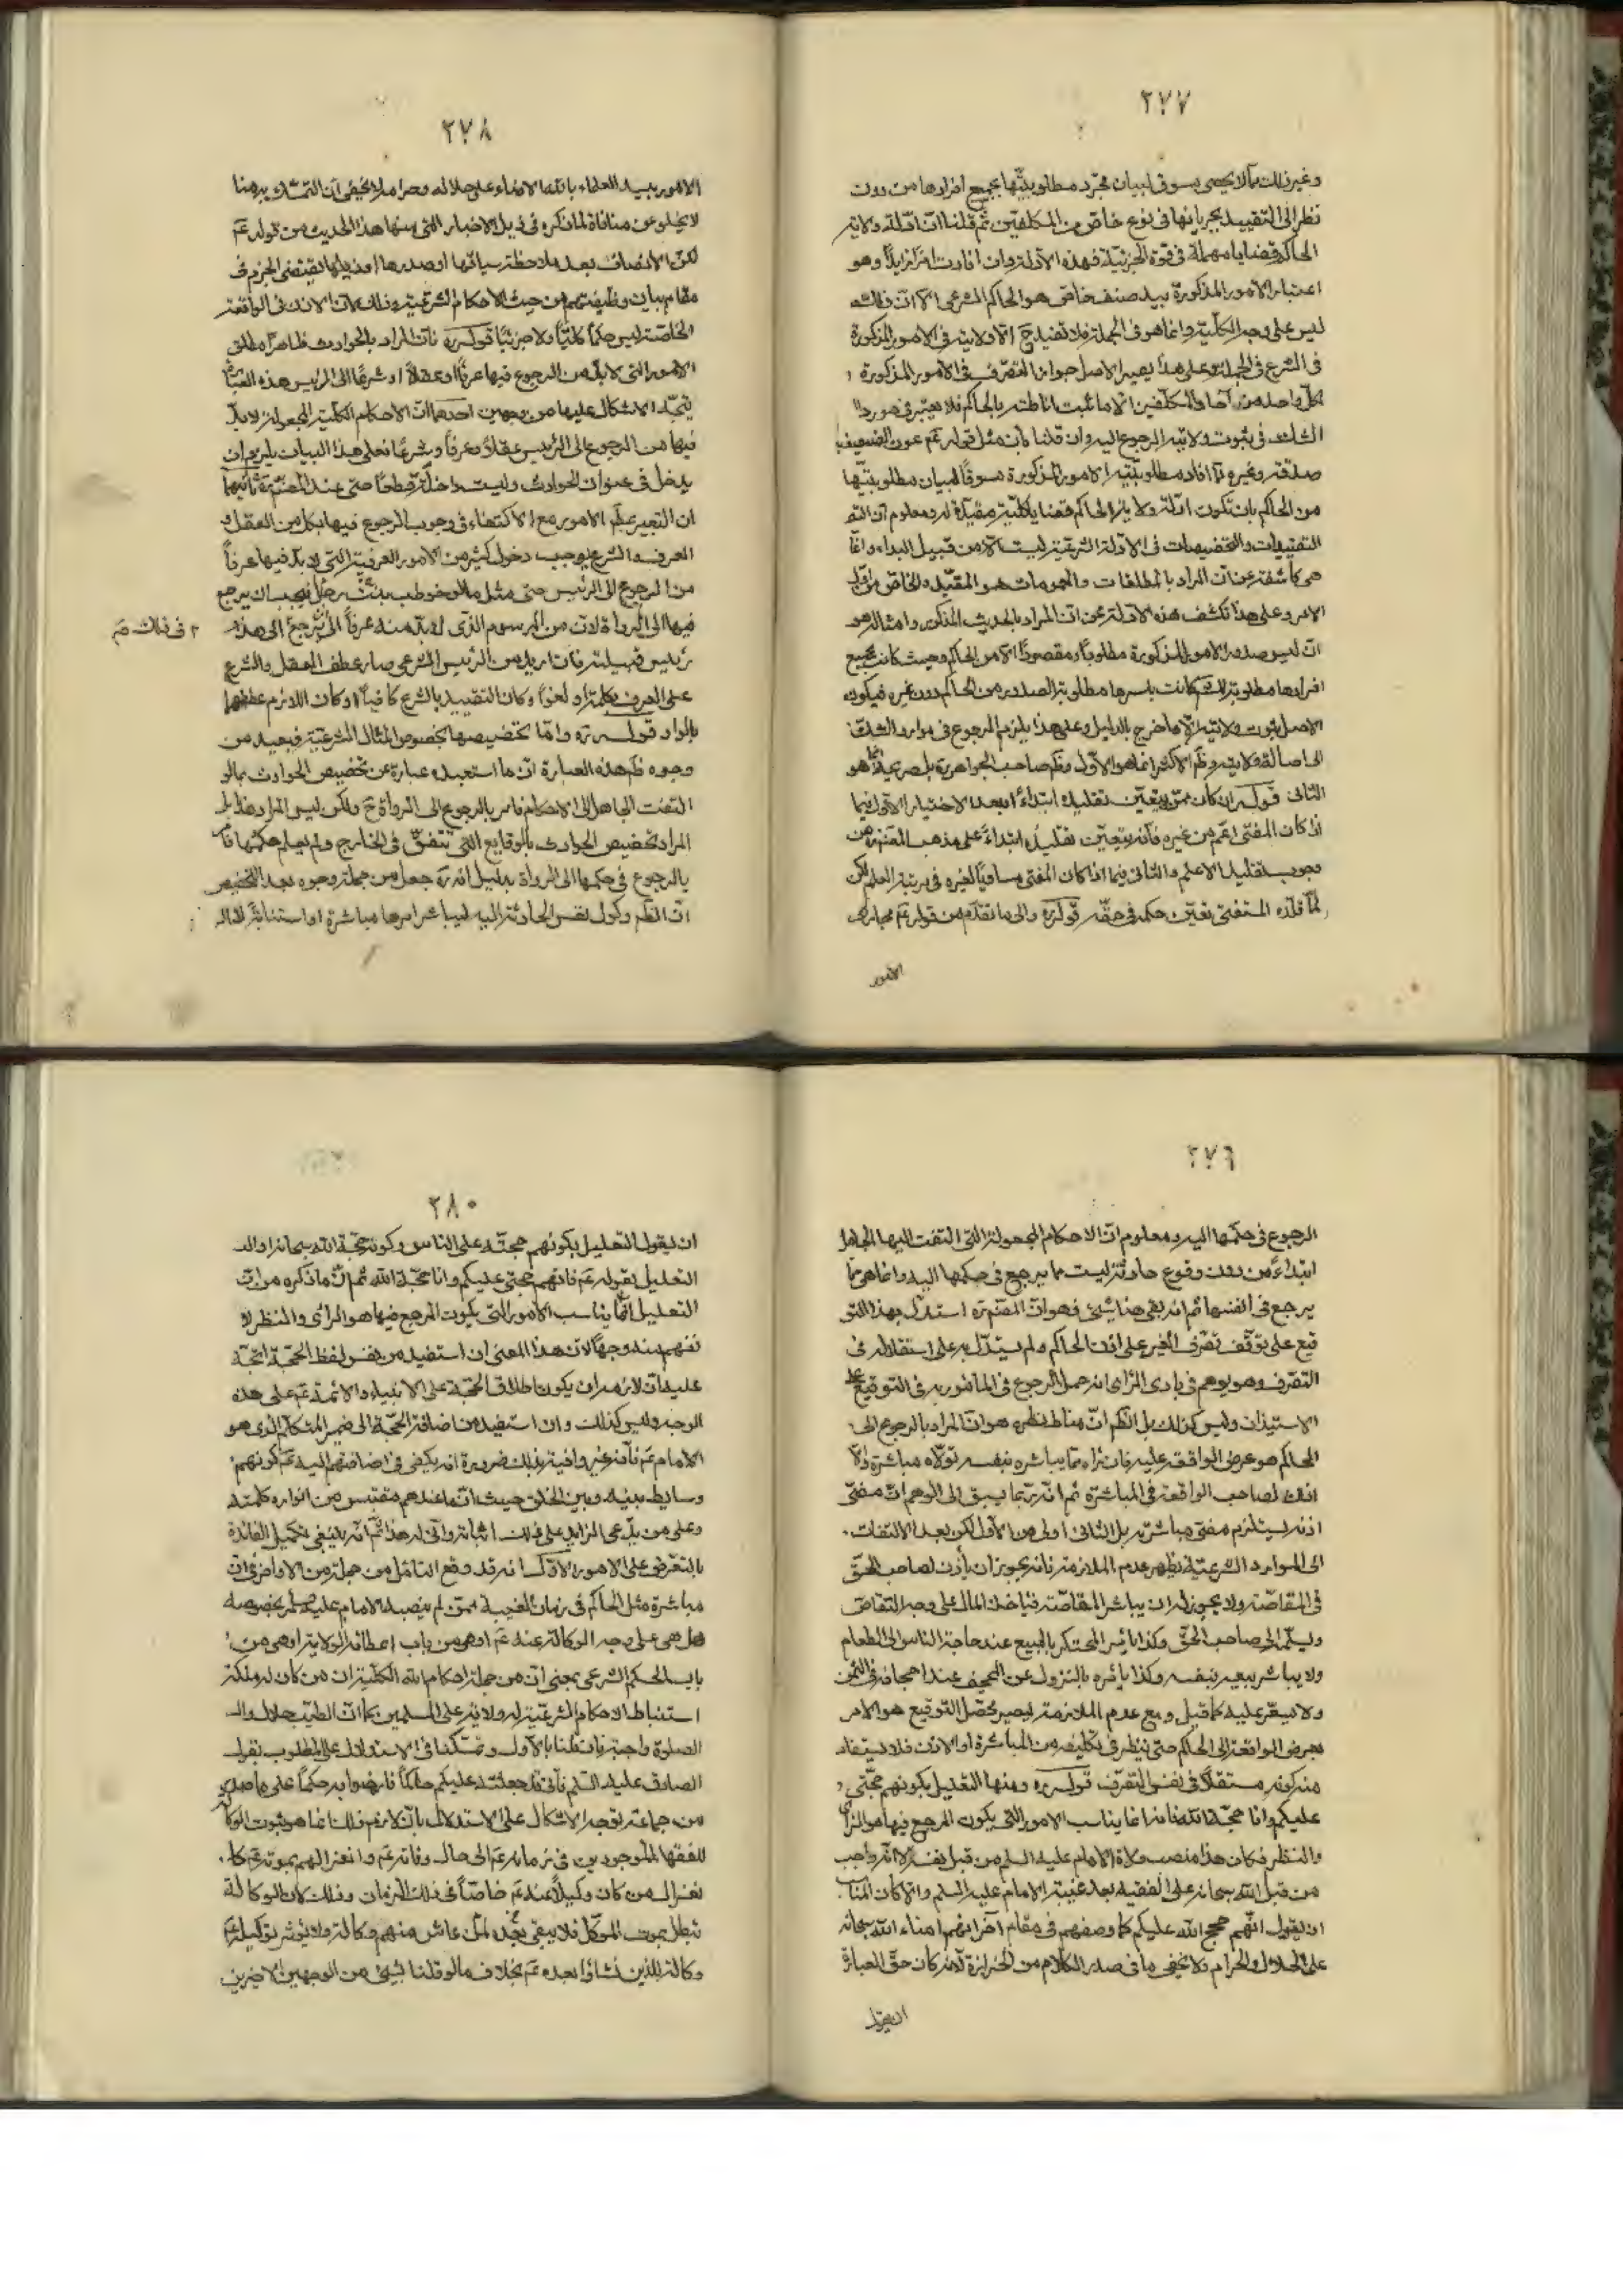 ٢٧٧
وغير ذلك مما لا يحصى مسوق لبيان مجرد مطلوبيتها بجميع افرادها من دون
نظر الى التقييد بجريانها في نوع خاص من المكلفين ثم قلنا ان ادلة ولاية
الحاكم قضايا مهملة في قوة الجزئية فهذه الادلة وان افادت امرا زايدا وهو
اعتبار الامور المذكورة بيد صنف خاص هو الحاكم الشرعي الا ان ذلك
ليس على وجه الكلية وانما هو في الجملة فلا تفيد ح الا ولايته في الامور المذكورة
في الشرع في الجملة وعلى هذا يصير الاصل جواز التصرف في الامور المذكورة
لكل واحد من آحاد المكلفين الا ما ثبت اناطته بالحاكم فلا يعتبر في موارد
الشك في ثبوت ولايته الرجوع اليه وان قلنا بان مثل قوله عم عون الضعيف
صدقة وغيره مما افاد مطلوبية الامور المذكورة مسوقا لبيان مطلوبيتها
من الحاكم بان تكون ادلة ولاية الحاكم قضايا كلية مقيدة له ومعلوم ان
التقييدات والتخصيصات في الادلة الشرعية ليست الا من قبيل البداء وانما
هي كاشفة عن ان المراد بالمطلقات والعمومات هو المقيد والخاص من اول
الامر وعلى هذا تكشف هذه الادلة عن ان المراد بالحديث المذكور وامثاله هو
ان ليس صدور الامور المذكورة مطلوبا ومقصودا الا من الحاكم وحيث كانت بجميع
افرادها مطلوبة للشم كانت باسرها مطلوبة الصدور من الحاكم دون غيره فيكون
الاصل ثبوت ولايته الا ما خرج بالدليل وعلى هذا يلزم الرجوع في موارد الشك
الى اصالة ولايته وظم الاكثر انما هو الاول وظم صاحب الجواهر ره بل صريحه انما هو
الثاني قوله ان كان ممن يتعين تقليده ابتداءً او بعد الاختيار الاول فيما
اذا كان المفتي اعم من غيره فانه يتعين تقليده ابتداءً على مذهب المصنف ره من
وجوب تقليد الاعلم والثاني فيما اذا كان المفتي مساويا لغيره في مرتبة العلم لكن
لما قلده المستفتي تعين حكمه في حقه قوله ره والى ما تقدم من قوله عم مجاري
الامور
٢٧٨
الامور بيد العلماء بالله الامناء على حلاله وحرامه لا يخفى ان التمسك به هنا
لا يخلو عن منافاة لما ذكره في ذيل الاخبار التي منها هذا الحديث من قوله عم
لكن الانصاف بعد ملاحظة سياقها او صدرها او ذيلها يقتضي الجزم في
مقام بيان وظيفتهم من حيث الاحكام الشرعية وذلك لان الاذن في الواقعة
الخاصة ليس حكما كليا ولا جزئيا قوله ره فان المراد بالحوادث ظاهرا مطلق
الامور التي لا بد من الرجوع فيها عرفا او عقلا او شرعا الى الرئيس هذه العبارة
يتجه الاشكال عليها من وجهين احدهما ان الاحكام الكلية المجعولة لا بد
فيها من الرجوع الى الرئيس عقلا وعرفا وشرعا فعلى هذا البيان يلزم ان
يدخل في عنوان الحوادث وليست داخلة قطعا حتى عند المصنف ره ثانيهما
ان التعبير بمطلق الامور مع الاكتفاء في وجوب الرجوع فيها بكل من العقل و
العرف والشرع يوجب دخول كثير من الامور العرفية التي لا بد فيها عرفا
من الرجوع الى الرئيس حتى مثل ما لو خوطب بدفن رجل فيجب ان يرجع
فيها الى الرواة لان من المرسوم الذي لا بد منه عرفا ان يرجع الى هذه
٢ في ذلك صم
رئيس قبيلته فان اريد من الرئيس الشرعي صار عطف العقل والشرع
على العرف بكلمة او لغوا وكان التقييد بالشرع كافيا او كان اللازم عطفهما
بالواو قوله ره واما تخصيصها بخصوص المسائل الشرعية فبعيد من
وجوه ظم هذه العبارة ان ما استبعده عبارة عن تخصيص الحوادث بما لو
التفت الجاهل الى الاحكام فامر بالرجوع الى الرواة ح ولكن ليس المراد هذا بل
المراد تخصيص الحوادث بالوقايع التي تتفق في الخارج ولم يعلم حكمها فامر
بالرجوع في حكمها الى الرواة بدليل انه ره جعل من جملة وجوه بعد التخصيص
ان الظم وكول نفس الحادثة اليه ليباشر امرها مباشرة او استنابة لا
٢٧٦
الرجوع في حكمها اليه ومعلوم ان الاحكام المجعولة التي التفت اليها الجاهل
ابتداءً من دون وقوع حادثة ليست مما يرجع في حكمها اليه وانما هي مما
يرجع في انفسها ثم انه بقى هنا شيئ وهو ان المصنف ره استدل بهذا التو
قيع على توقف تصرف الغير على اذن الحاكم ولم يستدل به على استقلاله في
التصرف وهو يوهم في بادي الرأي انه حمل الرجوع في المأمور به في التوقيع على
الاستيذان وليس كذلك بل الظم ان مناط نظره هو ان المراد بالرجوع الى
الحاكم هو عرض الواقعة عليه فان رآه مما يباشره بنفسه تولاه مباشرة والا
اذن لصاحب الواقعة في المباشرة ثم انه ربما يسبق الى الوهم ان مضي
اذنه يستلزم مضي مباشرته بل الثاني اولى من الاول لكن بعد الالتفات
الى الموارد الشرعية يظهر عدم الملازمة فانه يجوز ان يأذن لصاحب الحق
في المقاصة ولا يجوز له ان يباشر المقاصة فياخذ المال على وجه التقاص
ويسلمه الى صاحب الحق وكذا يأمر المحتكر بالبيع عند حاجة الناس الى الطعام
ولا يباشر بيعه بنفسه وكذا يأمره بالنزول عن المجحف عند اجحافه في الثمن
ولا يسعر عليه كما قيل ومع عدم الملازمة يصير محصل التوقيع هو الامر
بعرض الواقعة الى الحاكم حتى ينظر في تكليفه من المباشرة او الاذن فلا يستفاد
منه كونه مستقلا في نفس التصرف قوله ره ومنها التعليل بكونهم حجتي
عليكم وانا حجة الله فانه انما يناسب الامور التي يكون المرجع فيها هو الرأي
والنظر فكان هذا منصب ولاة الامام عليه السلم من قبل نفسه لا انه واجب
من قبل الله سبحانه على الفقيه بعد غيبة الامام عليه السلم والا كان المناسب
ان يقول انهم حجج الله عليكم كما وصفهم في مقام آخر انهم امناء الله سبحانه
على الحلال والحرام ولا يخفى ما في صدر الكلام من الحزازة لانه كان حق العبارة
ان يقول
٢٨٠
ان يقول التعليل بكونهم حجته على الناس وكونه حجة الله سبحانه او ان
التعليل بقوله عم فانهم حجتي عليكم وانا حجة الله ثم ان ما ذكره من ان
التعليل انما يناسب الامور التي يكون المرجع فيها هو الرأي والنظر لا
نفهم منه وجها لان هذا المعنى ان استفيد من نفس لفظ الحجة اتجه
عليه ان لازمه ان يكون اطلاق الحجة على الانبياء والائمة عم على هذه
الوجه وليس كذلك وان استفيد من اضافة الحجة الى ضمير المتكلم الذي هو
الامام عم فانه غير وافية بذلك ضرورة انه يكفي في اضافتهم اليه عم كونهم
وسايط بينه وبين الخلق حيث ان ما عندهم مقتبس من انواره كلمته
وعلى من يدعي الزايد على ذلك اثباته واني له هذا ثم انه ينبغي تكميل الفائدة
بالتعرض على الامور الاول انه قد وقع التامل من جملة من الافاضل في ان
مباشرة مثل الحاكم في زمان الغيبة ممن لم ينصبه الامام عليه السلم بخصوصه
هل هي على وجه الوكالة عنه عم او هي من باب اعطائه الولاية او هي من
باب الحكم الشرعي بمعنى ان من جملة احكام الله الكلية ان من كان له ملكة
استنباط الاحكام الشرعية له ولاية على المسلمين كما ان الطيب حلال و
الصلوة واجبة فان قلنا بالاول وتمسكنا في الاستدلال على المطلوب بقول
الصادق عليه السلم فاني قد جعلته عليكم حاكما فارضوا به حكما على ما صدر
من جماعة توجه الاشكال على الاستدلال بان لازم ذلك انما هو ثبوت الوكالة
للفقهاء الموجودين في زمانه عم الى حال وفاته عم وانعزالهم بموته عم كما
نعزال من كان وكيلا عنه عم خاصا في ذلك الزمان وذلك لان الوكالة
تبطل بموت الموكل فلا يبقى بعده لمن عاش منهم وكالة ولا يؤثر توكيله
وكالة للذين نشاؤا بعده عم بخلاف ما لو قلنا بشيئ من الوجهين الاخيرين